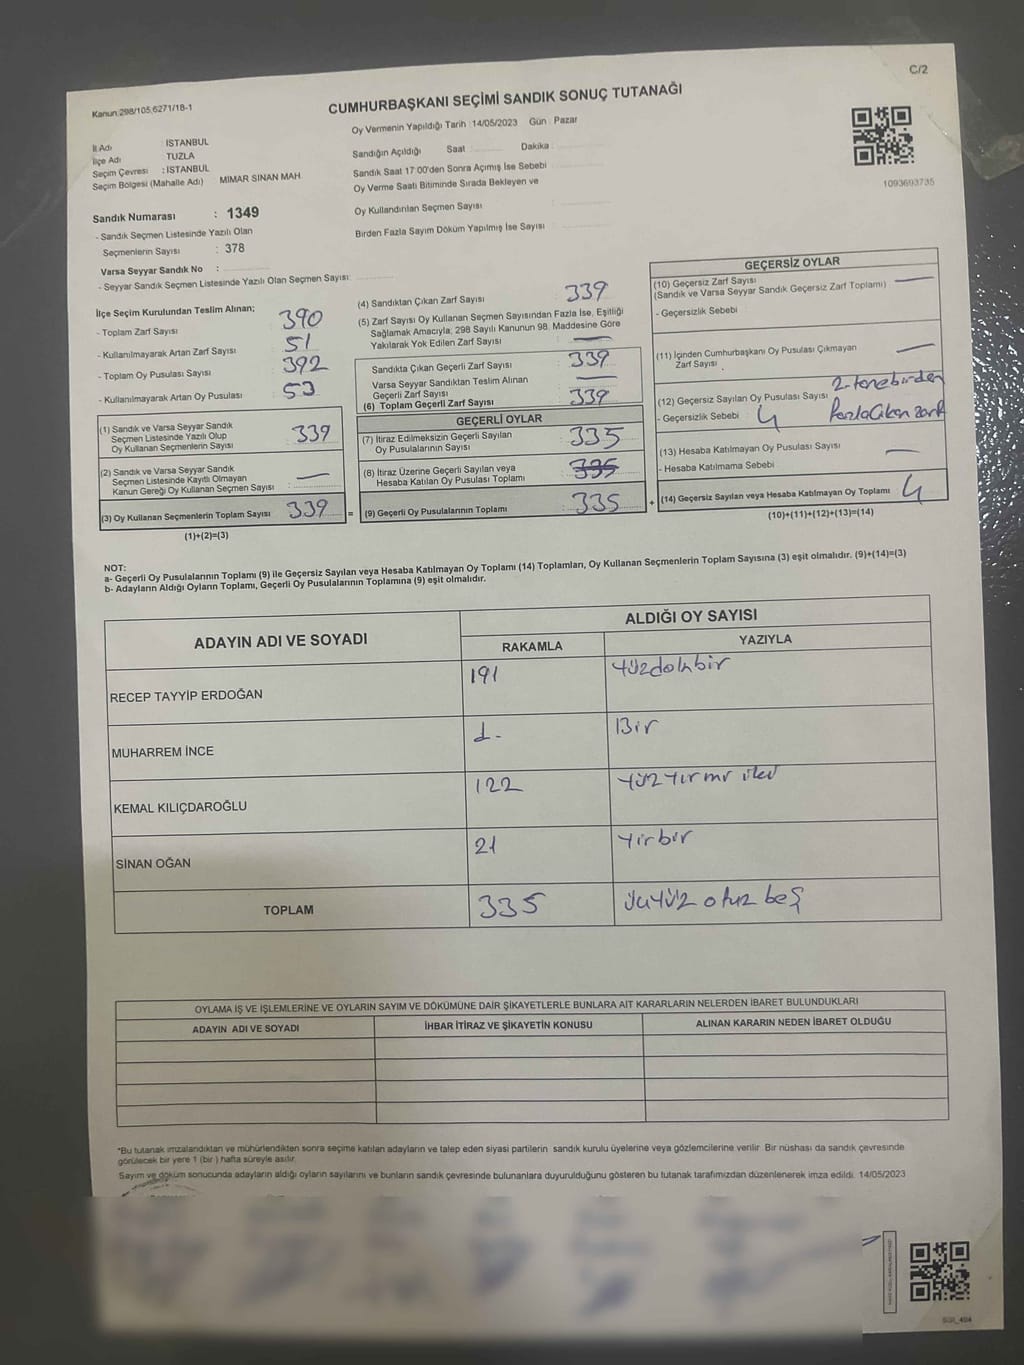 C/2
Kanun:298/105,6271/18-1
CUMHURBAŞKANI SEÇİMİ SANDIK SONUÇ TUTANAĞI
İl Adı : İSTANBUL
İlçe Adı : TUZLA
Seçim Çevresi : İSTANBUL
Seçim Bölgesi (Mahalle Adı) MİMAR SİNAN MAH.
Sandık Numarası : 1349
- Sandık Seçmen Listesinde Yazılı Olan
Seçmenlerin Sayısı : 378
Varsa Seyyar Sandık No :
- Seyyar Sandık Seçmen Listesinde Yazılı Olan Seçmen Sayısı:
Oy Vermenin Yapıldığı Tarih :14/05/2023 Gün : Pazar
Sandığın Açıldığı Saat Dakika :
Sandık Saat 17:00'den Sonra Açımış İse Sebebi
Oy Verme Saati Bitiminde Sırada Bekleyen ve
Oy Kullandırılan Seçmen Sayısı :
Birden Fazla Sayım Döküm Yapılmış İse Sayısı :
1093693735
İlçe Seçim Kurulundan Teslim Alınan;
- Toplam Zarf Sayısı : 390
- Kullanılmayarak Artan Zarf Sayısı : 51
- Toplam Oy Pusulası Sayısı : 392
- Kullanılmayarak Artan Oy Pusulası : 53
(1) Sandık ve Varsa Seyyar Sandık
Seçmen Listesinde Yazılı Olup
Oy Kullanan Seçmenlerin Sayısı : 339
(2) Sandık ve Varsa Seyyar Sandık
Seçmen Listesinde Kayıtlı Olmayan
Kanun Gereği Oy Kullanan Seçmen Sayısı : —
(3) Oy Kullanan Seçmenlerin Toplam Sayısı : 339 =
(1)+(2)=(3)
(4) Sandıktan Çıkan Zarf Sayısı : 339
(5) Zarf Sayısı Oy Kullanan Seçmen Sayısından Fazla İse, Eşitliği
Sağlamak Amacıyla; 298 Sayılı Kanunun 98. Maddesine Göre
Yakılarak Yok Edilen Zarf Sayısı : —
Sandıkta Çıkan Geçerli Zarf Sayısı : 339
Varsa Seyyar Sandıktan Teslim Alınan
Geçerli Zarf Sayısı : —
(6) Toplam Geçerli Zarf Sayısı : 339
GEÇERLİ OYLAR
(7) İtiraz Edilmeksizin Geçerli Sayılan
Oy Pusulalarının Sayısı : 335
(8) İtiraz Üzerine Geçerli Sayılan veya
Hesaba Katılan Oy Pusulası Toplamı : 335
(9) Geçerli Oy Pusulalarının Toplamı : 335 +
GEÇERSİZ OYLAR
(10) Geçersiz Zarf Sayısı
(Sandık ve Varsa Seyyar Sandık Geçersiz Zarf Toplamı) —
- Geçersizlik Sebebi
(11) İçinden Cumhurbaşkanı Oy Pusulası Çıkmayan
Zarf Sayısı —
(12) Geçersiz Sayılan Oy Pusulası Sayısı 2-tane birden
- Geçersizlik Sebebi 4 fazla Çıkan zarf
(13) Hesaba Katılmayan Oy Pusulası Sayısı —
- Hesaba Katılmama Sebebi
(14) Geçersiz Sayılan veya Hesaba Katılmayan Oy Toplamı 4
(10)+(11)+(12)+(13)=(14)
NOT:
a- Geçerli Oy Pusulalarının Toplamı (9) ile Geçersiz Sayılan veya Hesaba Katılmayan Oy Toplamı (14) Toplamları, Oy Kullanan Seçmenlerin Toplam Sayısına (3) eşit olmalıdır. (9)+(14)=(3)
b- Adayların Aldığı Oyların Toplamı, Geçerli Oy Pusulalarının Toplamına (9) eşit olmalıdır.
ADAYIN ADI VE SOYADI
ALDIĞI OY SAYISI
RAKAMLA YAZIYLA
RECEP TAYYİP ERDOĞAN 191 Yüzdoksbir
MUHARREM İNCE 1- Bir
KEMAL KILIÇDAROĞLU 122 Yüz yirmi iki
SİNAN OĞAN 21 Yirbir
TOPLAM 335 üçyüz otuz beş
OYLAMA İŞ VE İŞLEMLERİNE VE OYLARIN SAYIM VE DÖKÜMÜNE DAİR ŞİKAYETLERLE BUNLARA AİT KARARLARIN NELERDEN İBARET BULUNDUKLARI
ADAYIN ADI VE SOYADI İHBAR İTİRAZ VE ŞİKAYETİN KONUSU ALINAN KARARIN NEDEN İBARET OLDUĞU
*Bu tutanak imzalandıktan ve mühürlendikten sonra seçime katılan adayların ve talep eden siyasi partilerin sandık kurulu üyelerine veya gözlemcilerine verilir. Bir nüshası da sandık çevresinde
görülecek bir yere 1 (bir) hafta süreyle asılır.
Sayım ve döküm sonucunda adayların aldığı oyların sayılarını ve bunların sandık çevresinde bulunanlara duyurulduğunu gösteren bu tutanak tarafımızdan düzenlenerek imza edildi. 14/05/2023